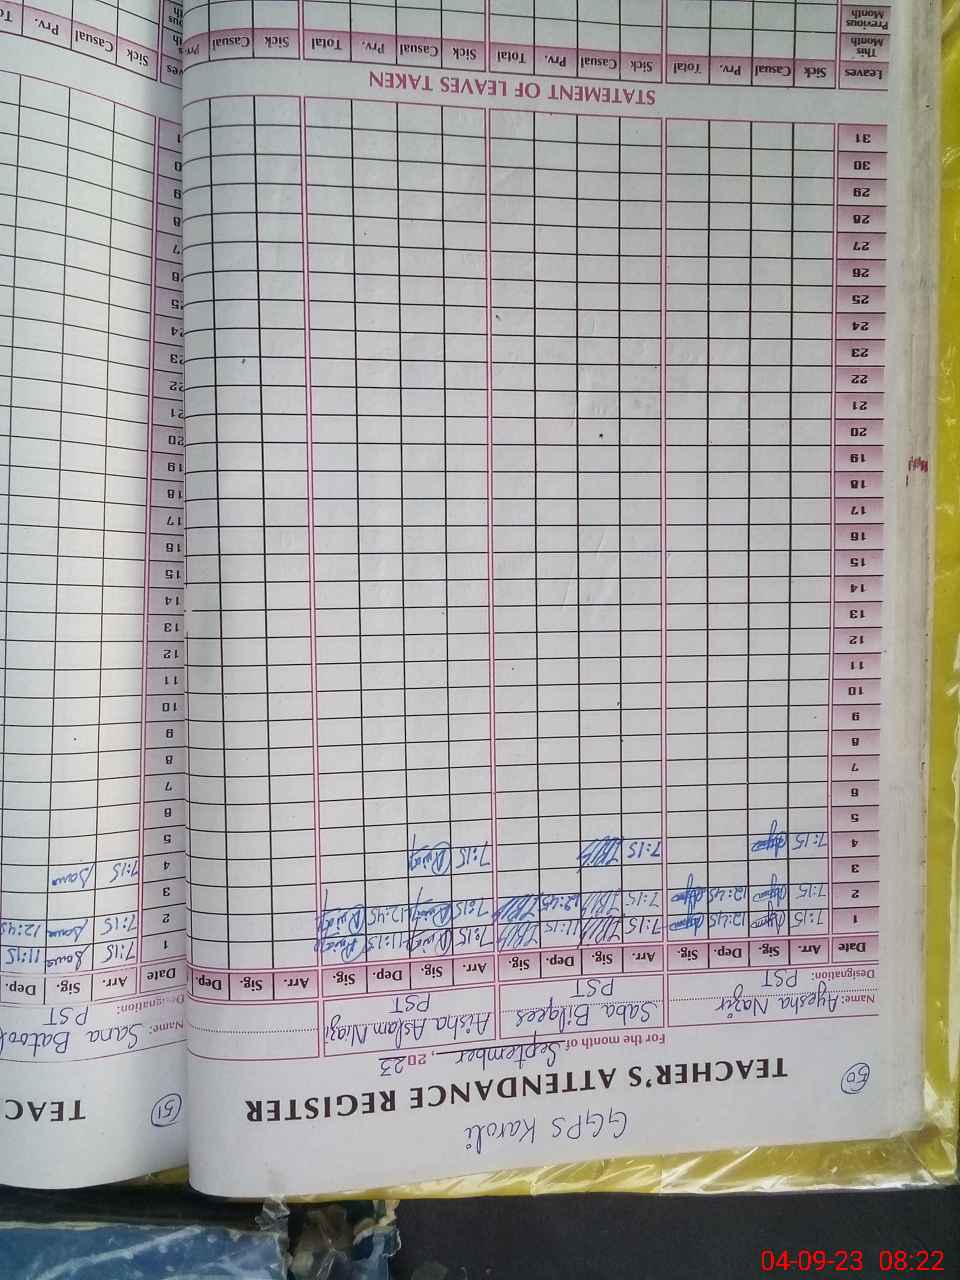 GGPS Karoli
50
TEACHER'S ATTENDANCE REGISTER
For the month of September, 2023
Name: Ayesha Nazir Saba Bilqees Aisha Aslam Niazi
Designation: PST PST PST
Date Arr. Sig. Dep. Sig. Arr. Sig. Dep. Sig. Arr. Sig. Dep. Sig. Arr. Sig. Dep.
1 7:15 12:45 7:15 11:15 7:15 11:15
2 7:15 12:45 7:15 12:45 7:15 12:45
3
4 7:15 7:15 7:15
5
6
7
8
9
10
11
12
13
14
15
16
17
18
19
20
21
22
23
24
25
26
27
28
29
30
31
STATEMENT OF LEAVES TAKEN
Leaves Sick Casual Prv. Total Sick Casual Prv. Total Sick Casual Prv. Total Sick Casual Prv.
This Month
Previous Month
51
TEAC
Name: Sana Batool
Designation: PST
Date Arr. Sig. Dep.
1 7:15 Sana 11:15
2 7:15 Sana 12:45
3
4 7:15 Sana
5
6
7
8
9
10
11
12
13
14
15
16
17
18
19
20
21
22
23
24
25
Sick Casual Prv.
04-09-23 08:22